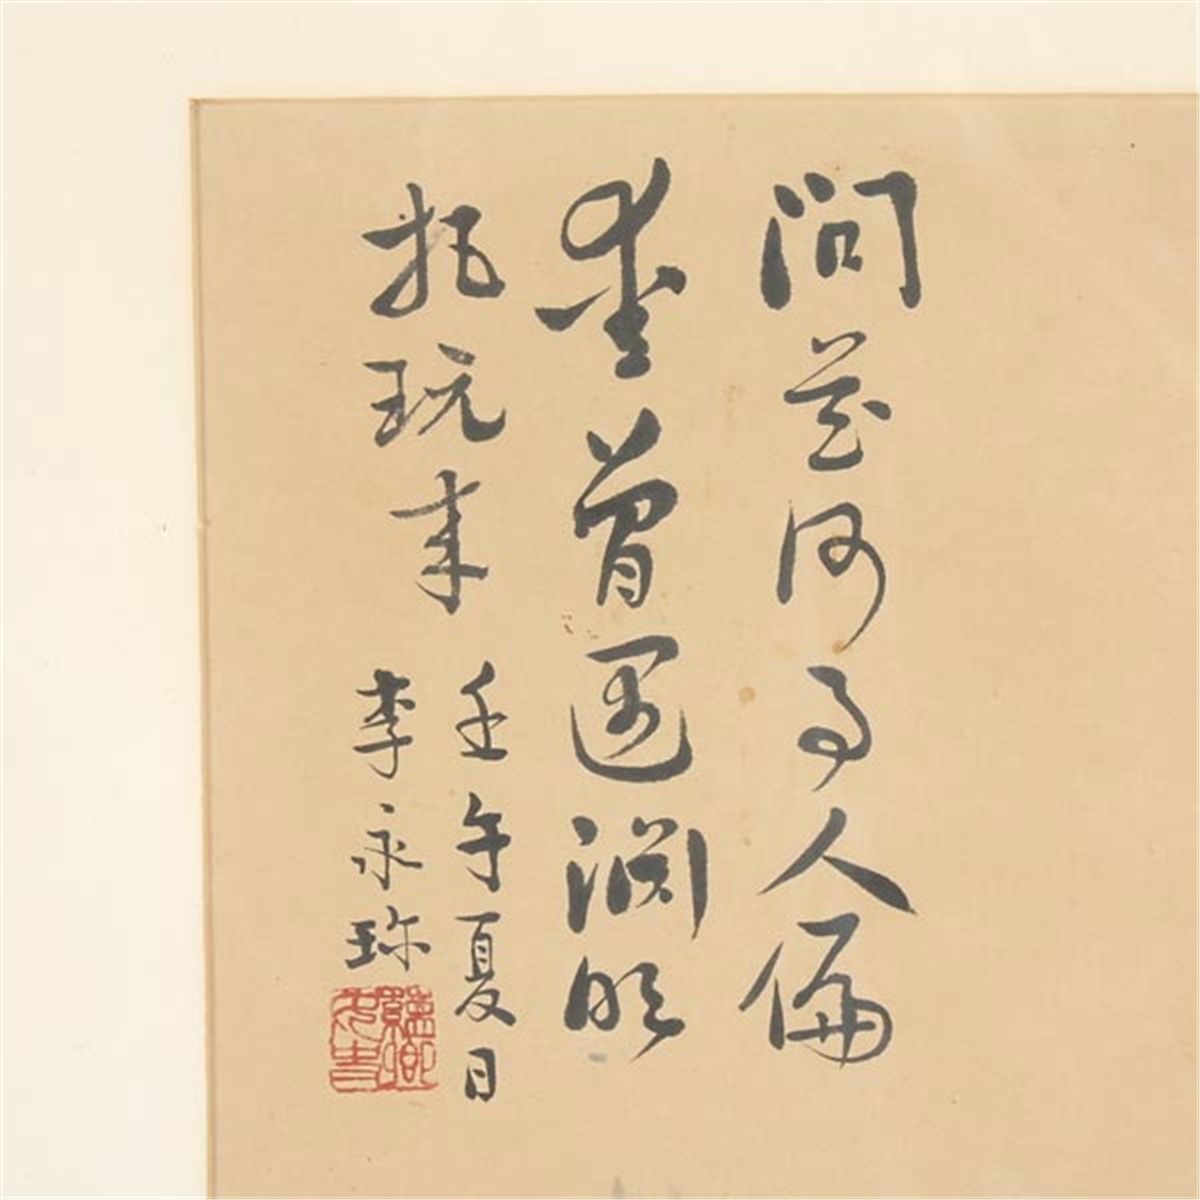 問花何事人偏
愛曾遇淵明
把玩來
壬午夏日
李永珍